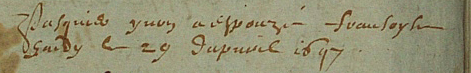 Pasquier yvon a espouzé francoyse
hardy le 29 dapvril 1697